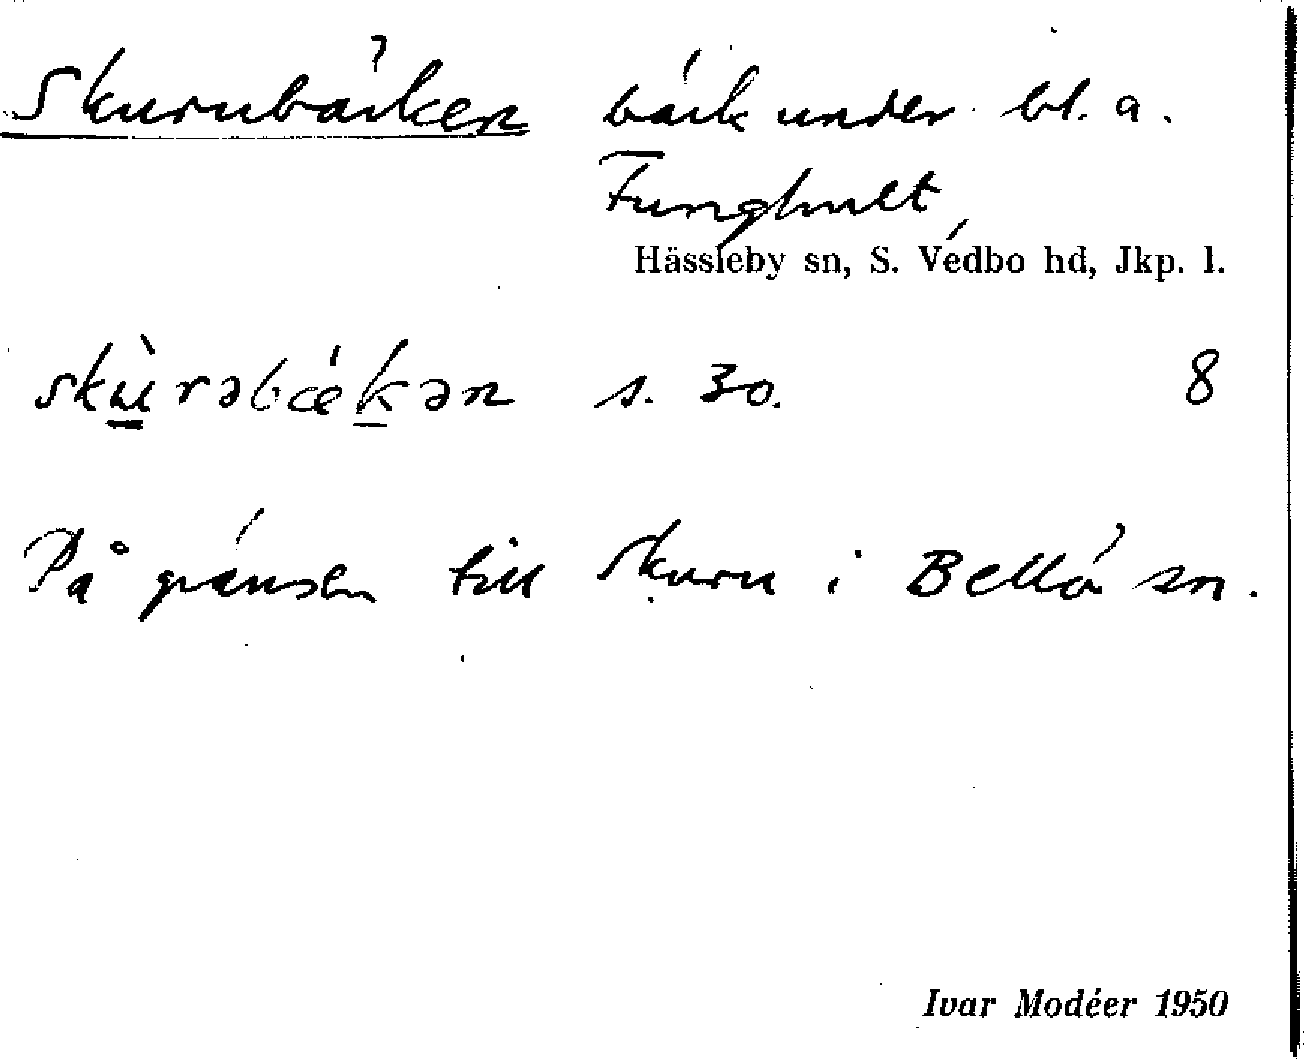 Skurubäcken bäck under bl. a.
Funghult,
Hässleby sn, S. Vedbo hd, Jkp. l.
skùrəbǽkən s. 30. 8
På gränsen till Skuru i Bellö sn.
Ivar Modéer 1950